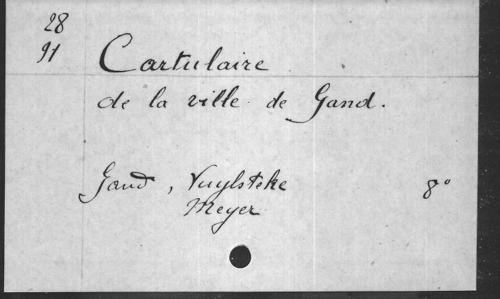 28
91
Cartulaire
de la ville de Gand.
Gand, Vuylsteke 8°
Meyer